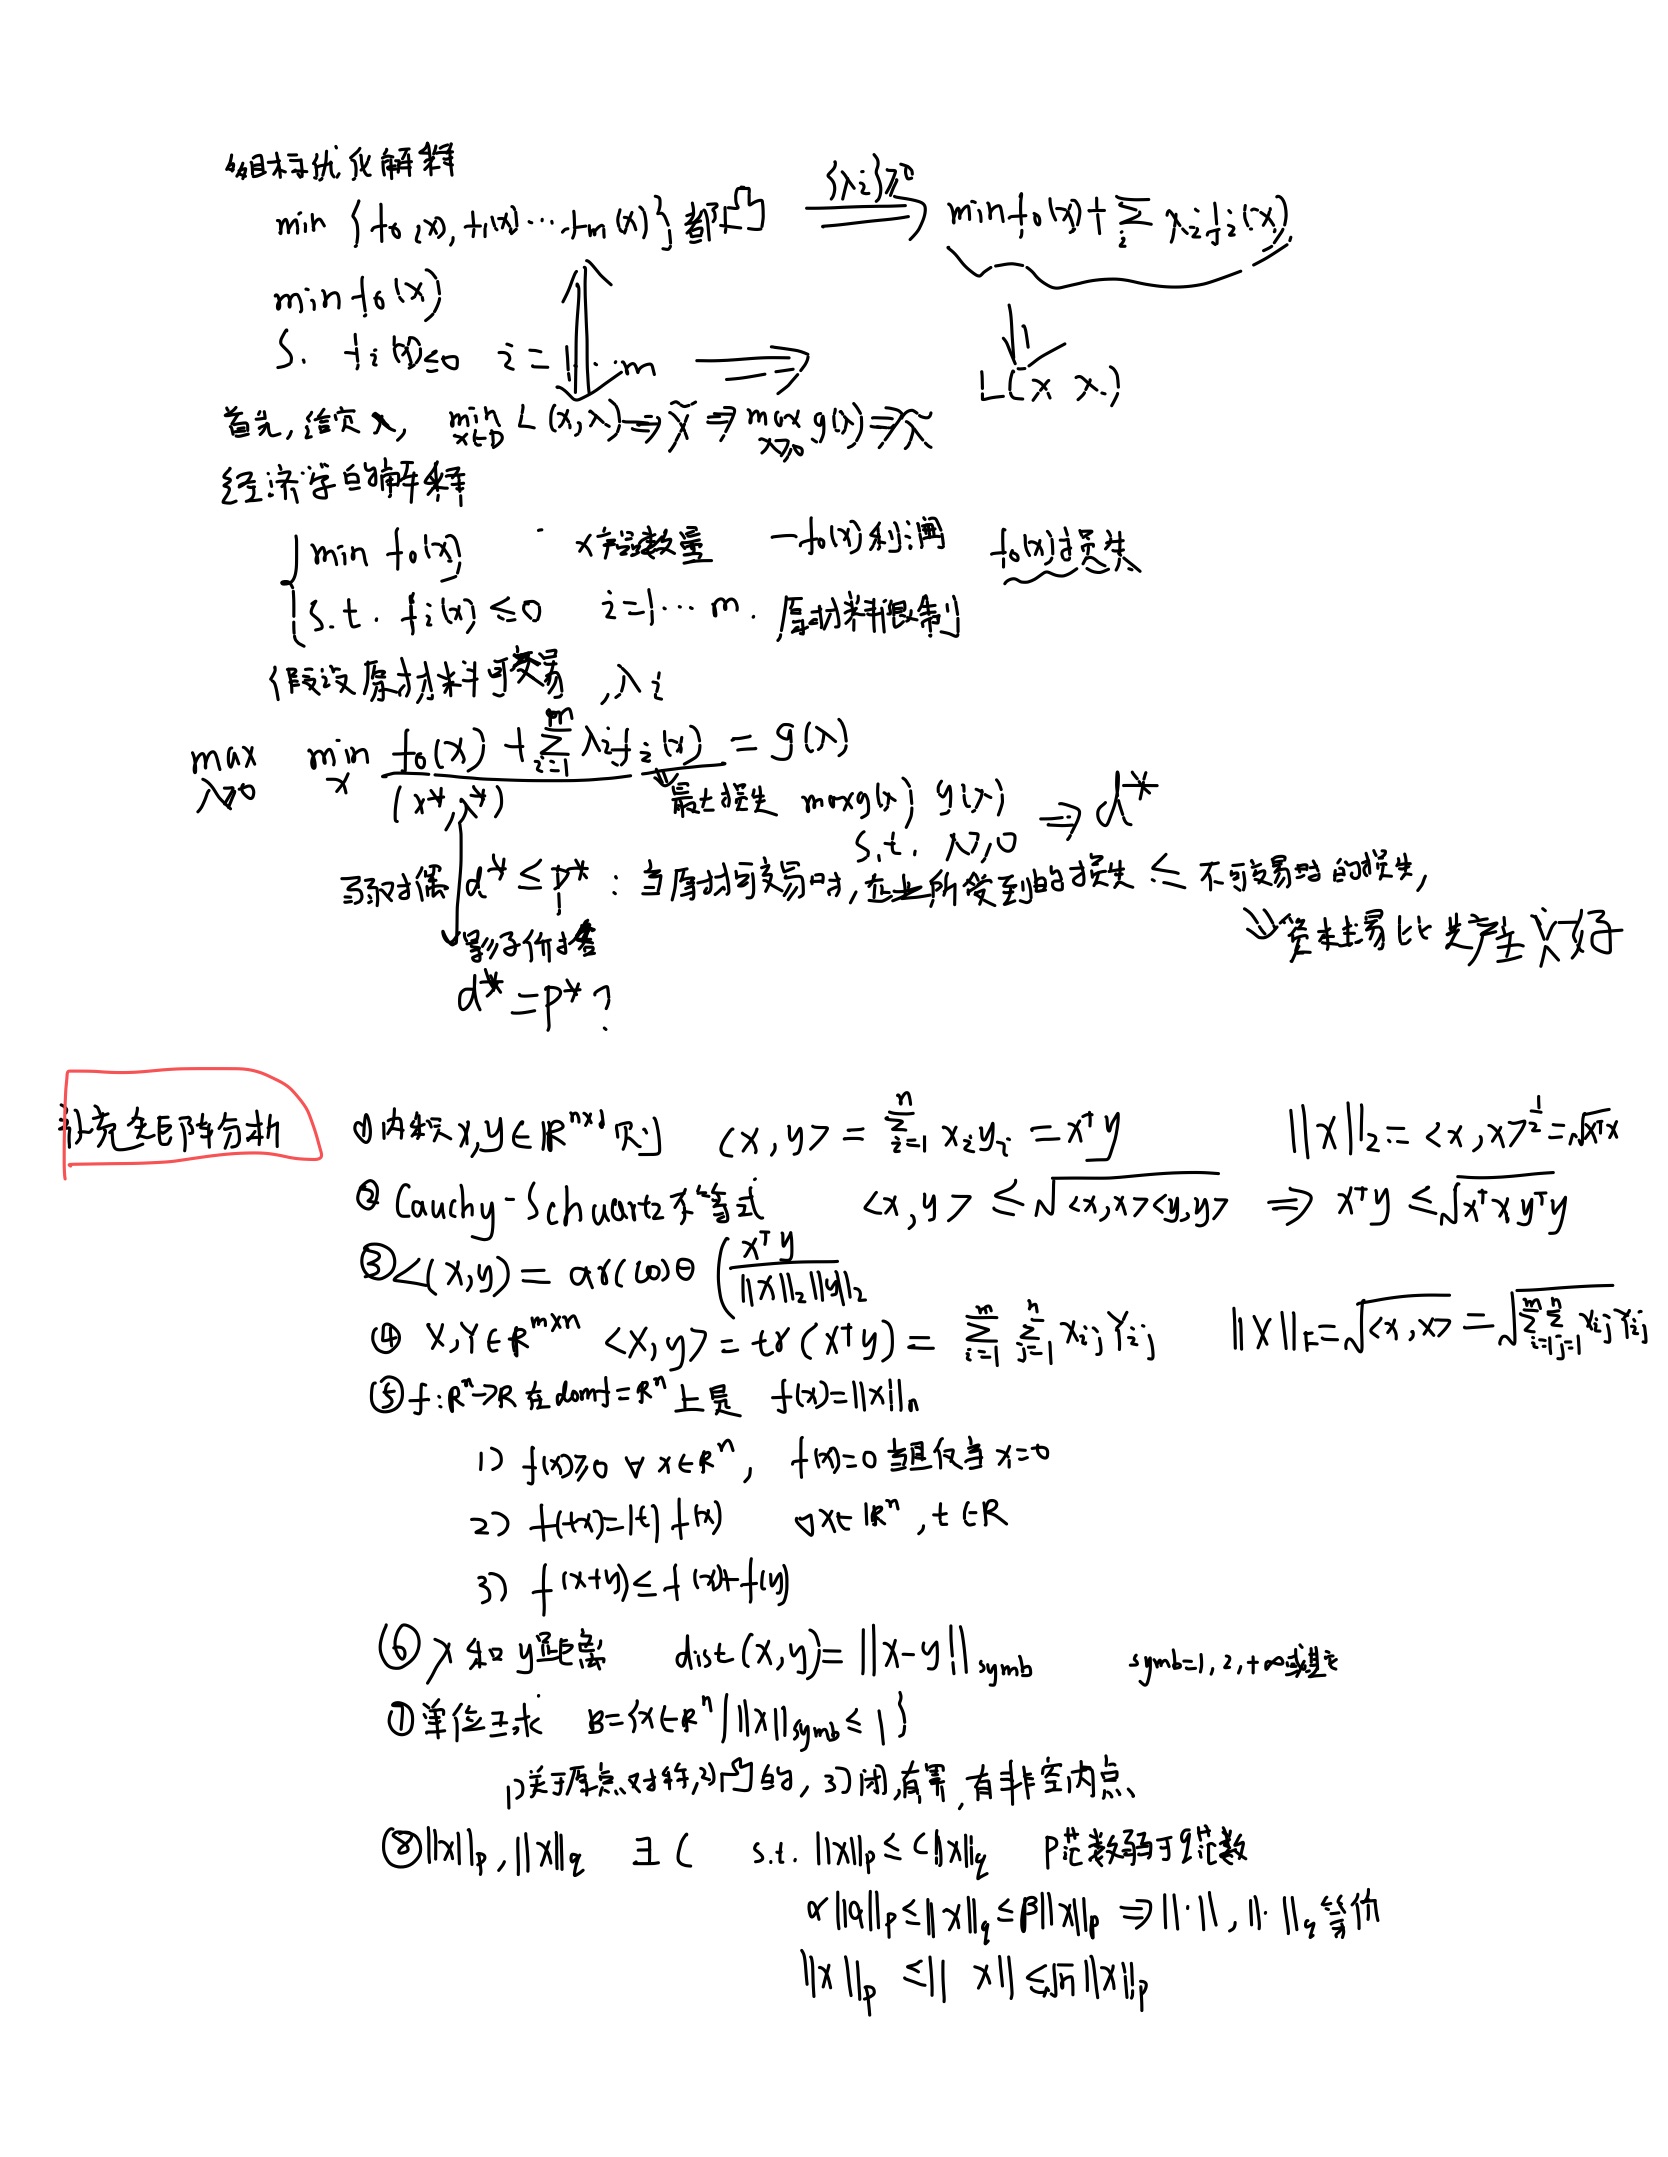 多目标优化解释
min {f₀(x), f₁(x)⋯fₘ(x)} 都凸 {λi}≥0 ⇒ min f₀(x)+∑ᵢ λᵢfᵢ(x)
min f₀(x)
S. fᵢ(x)≤0 i=1⋯m ⇒ L(x λ)
首先,给定λ, min x∈D L(x,λ)⇒x̃⇒max λ≥0 g(λ)⇒λ̃
经济学的解释
{min f₀(x) x产品数量 -f₀(x)利润 f₀(x)损失
s.t. fᵢ(x)≤0 i=1⋯m. 原材料限制
假设原材料可交易,λi
max λ≥0 min x f₀(x)+∑ᵢ₌₁ᵐ λᵢfᵢ(x) = g(λ)
(x*,λ*) 最大损失 max g(λ) g(λ) ⇒ d*
s.t. λ≥0
弱对偶 d*≤p* : 当原材可交易时,企业所受到的损失≤不可交易时的损失,
影子价格
d*=p*?
补充矩阵分析 ①内积x,y∈ℝⁿˣ¹ 则 <x,y>=∑ᵢ₌₁ⁿ xᵢyᵢ=xᵀy ||x||₂:=<x,x>^½=√xᵀx
② Cauchy-Schuartz不等式 <x,y>≤√<x,x><y,y> ⇒ xᵀy≤√xᵀx yᵀy
③∠(x,y)=arccosθ(xᵀy/||x||₂||y||₂
④ X,Y∈ℝᵐˣⁿ <X,y>=tr(Xᵀy)=∑ᵢ₌₁ᵐ∑ⱼ₌₁ⁿ XᵢⱼYᵢⱼ ||X||F=√<x,x>=√∑ᵢ₌₁ᵐ∑ⱼ₌₁ⁿ XᵢⱼYᵢⱼ
⑤f:Rⁿ→R在domf=Rⁿ上是 f(x)=||x||ₙ
1) f(x)≥0 ∀x∈Rⁿ, f(x)=0当且仅当x=0
2) f(tx)=|t|f(x) ∀x∈ℝⁿ,t∈R
3) f(x+y)≤f(x)+f(y)
⑥ x和y距离 dist(x,y)=||x-y||symb symb=1,2,+∞
⑦单位球 B={x∈Rⁿ| ||x||symb≤1}
1)关于原点对称,2)凸的,3)闭,有界,有非空内点
⑧||x||p,||x||q ∃C s.t. ||x||p≤C||x||q p范数弱于q范数
α||α||p≤||x||q≤β||x||p⇒||·||,||·||q等价
||x||p≤||x||≤√n||x||p